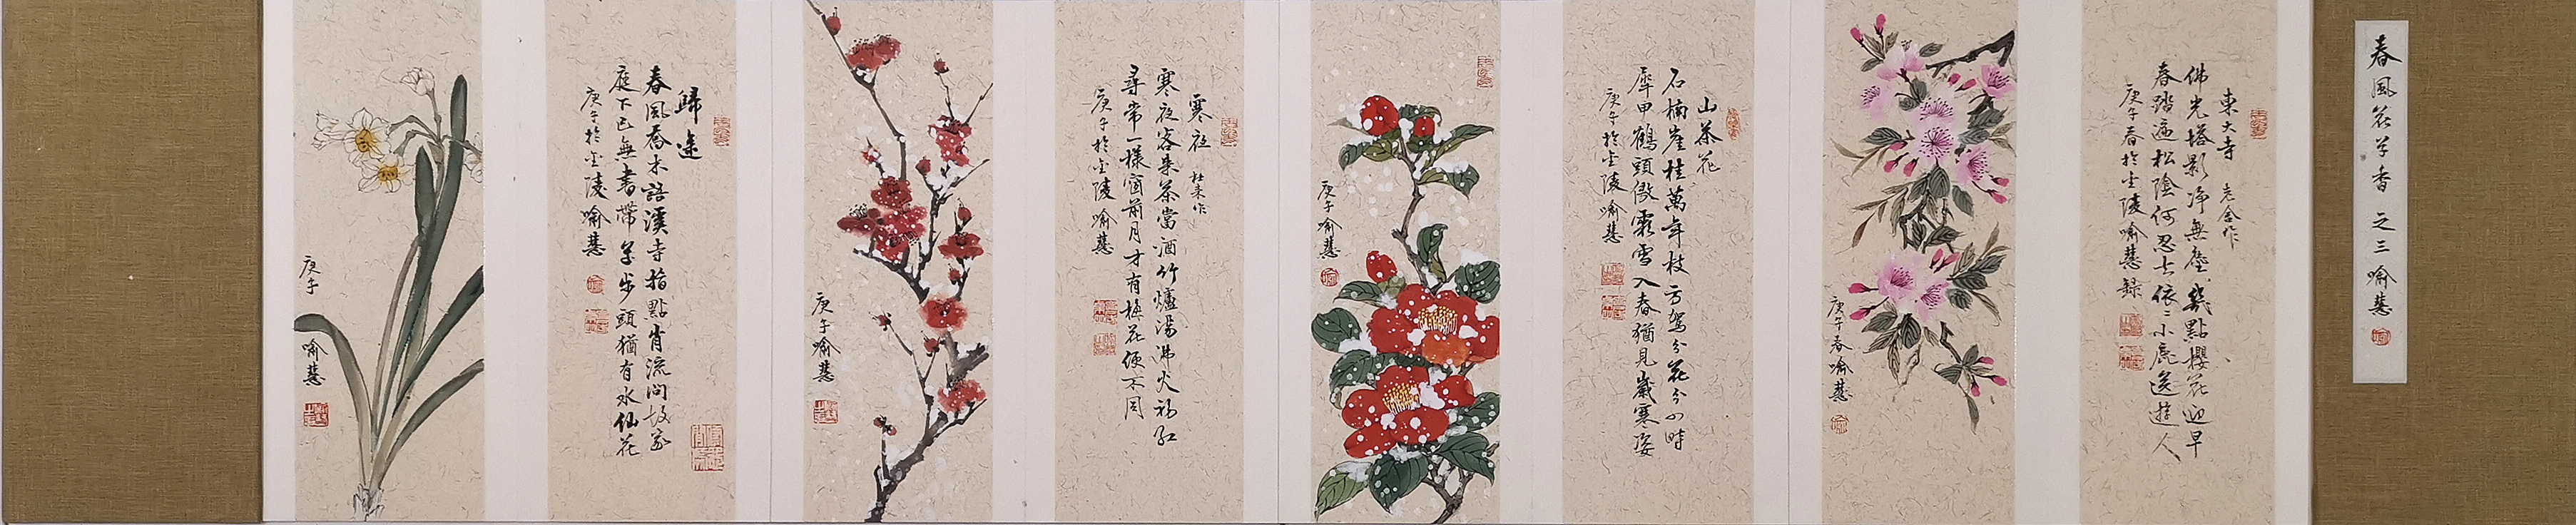 春風花草香 之三 喻慧
東大寺 老舍作
佛光塔影净無塵幾點櫻花迎早
春踏遍松陰何忍去依:小鹿送遊人
庚子春於金陵喻慧録
庚子春喻慧
山茶花
石楠崖桂萬年枝方駕分花分外時
犀甲鶴頭傲霜雪入春猶見歲寒姿
庚子於金陵喻慧
庚子喻慧
寒夜 杜耒作
寒夜客来茶當酒竹爐湯沸火初紅
尋常一樣窗前月才有梅花便不同
庚子於金陵喻慧
庚子喻慧
歸途
春風喬木語溪寺指點背流問故家
庭下已無書帶草步頭猶有水仙花
庚子於金陵喻慧
庚子
喻慧